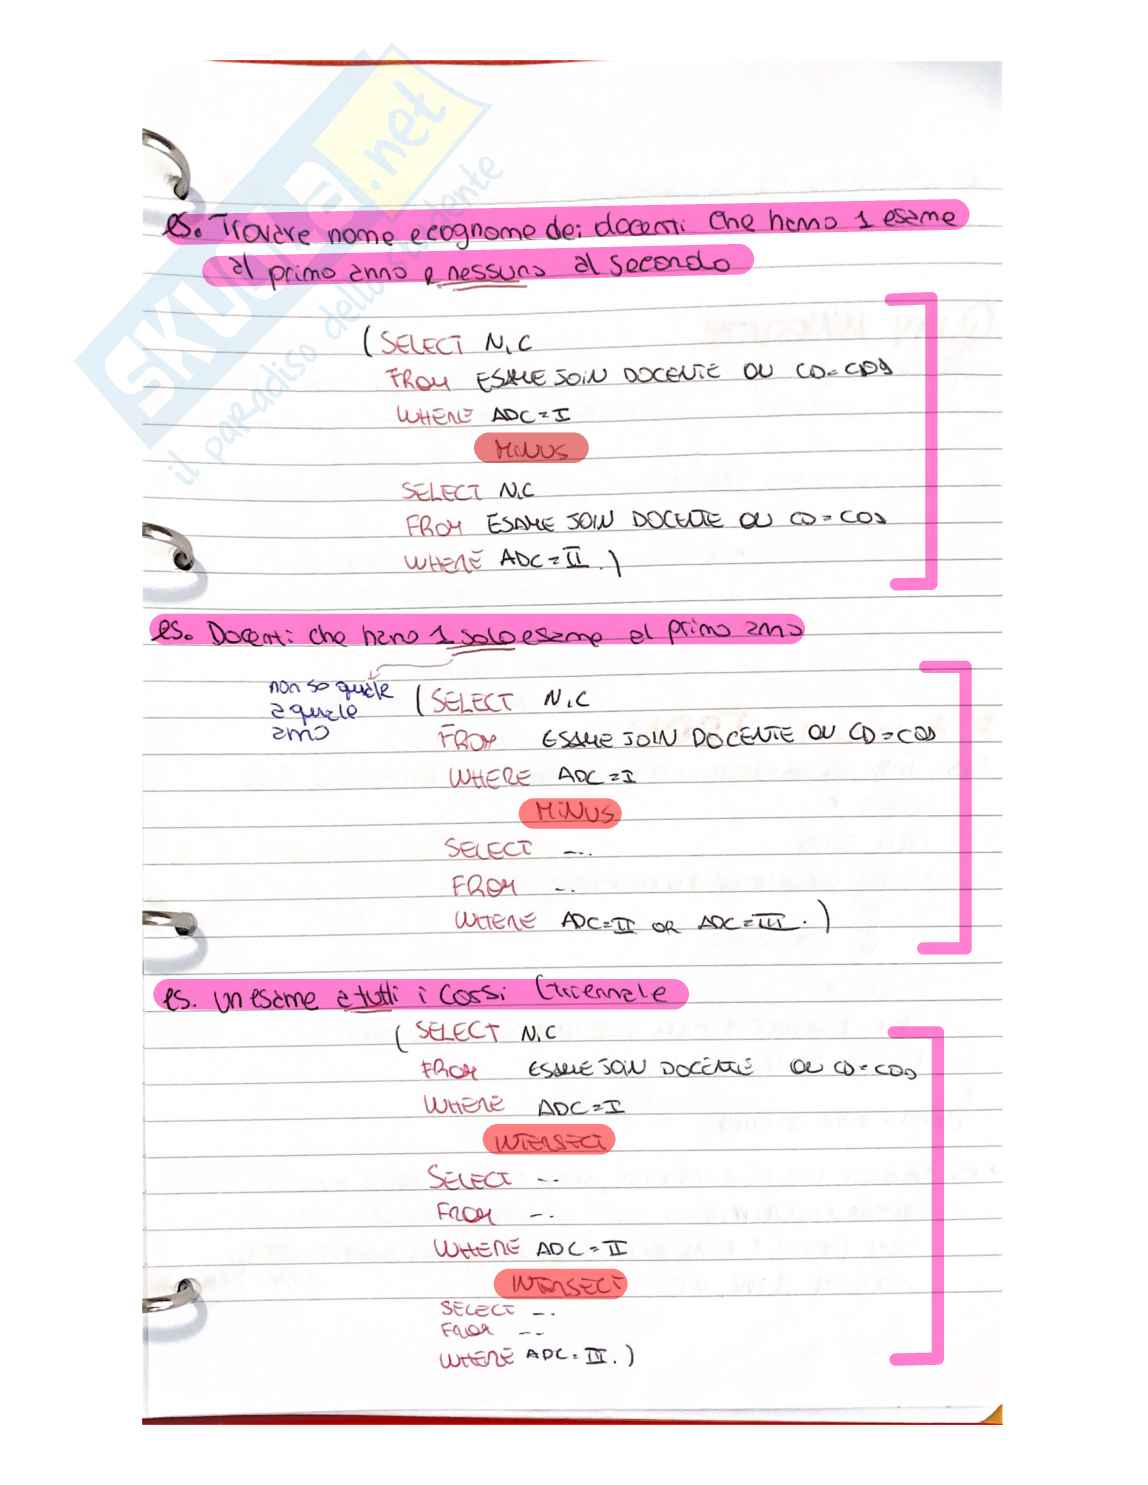 SKUOLA.net
il paradiso dello studente
es. Trovare nome e cognome dei docenti che hanno 1 esame
al primo anno e nessuno al secondo
(SELECT N,C
FROM ESAME JOIN DOCENTE ON CD=CDD
WHERE ADC=I
MINUS
SELECT N,C
FROM ESAME JOIN DOCENTE ON CD=CDD
WHERE ADC=II.)
es. Docenti che hanno 1 solo esame al primo anno
non so quale
a quale
anno
(SELECT N,C
FROM ESAME JOIN DOCENTE ON CD=CDD
WHERE ADC=I
MINUS
SELECT ...
FROM ..
WHERE ADC=II OR ADC=III.)
es. un esame a tutti i corsi (triennale
(SELECT N,C
FROM ESAME JOIN DOCENTE ON CD=CDD
WHERE ADC=I
INTERSECT
SELECT ..
FROM ..
WHERE ADC=II
INTERSECT
SELECT ..
FROM ..
WHERE ADC=III.)